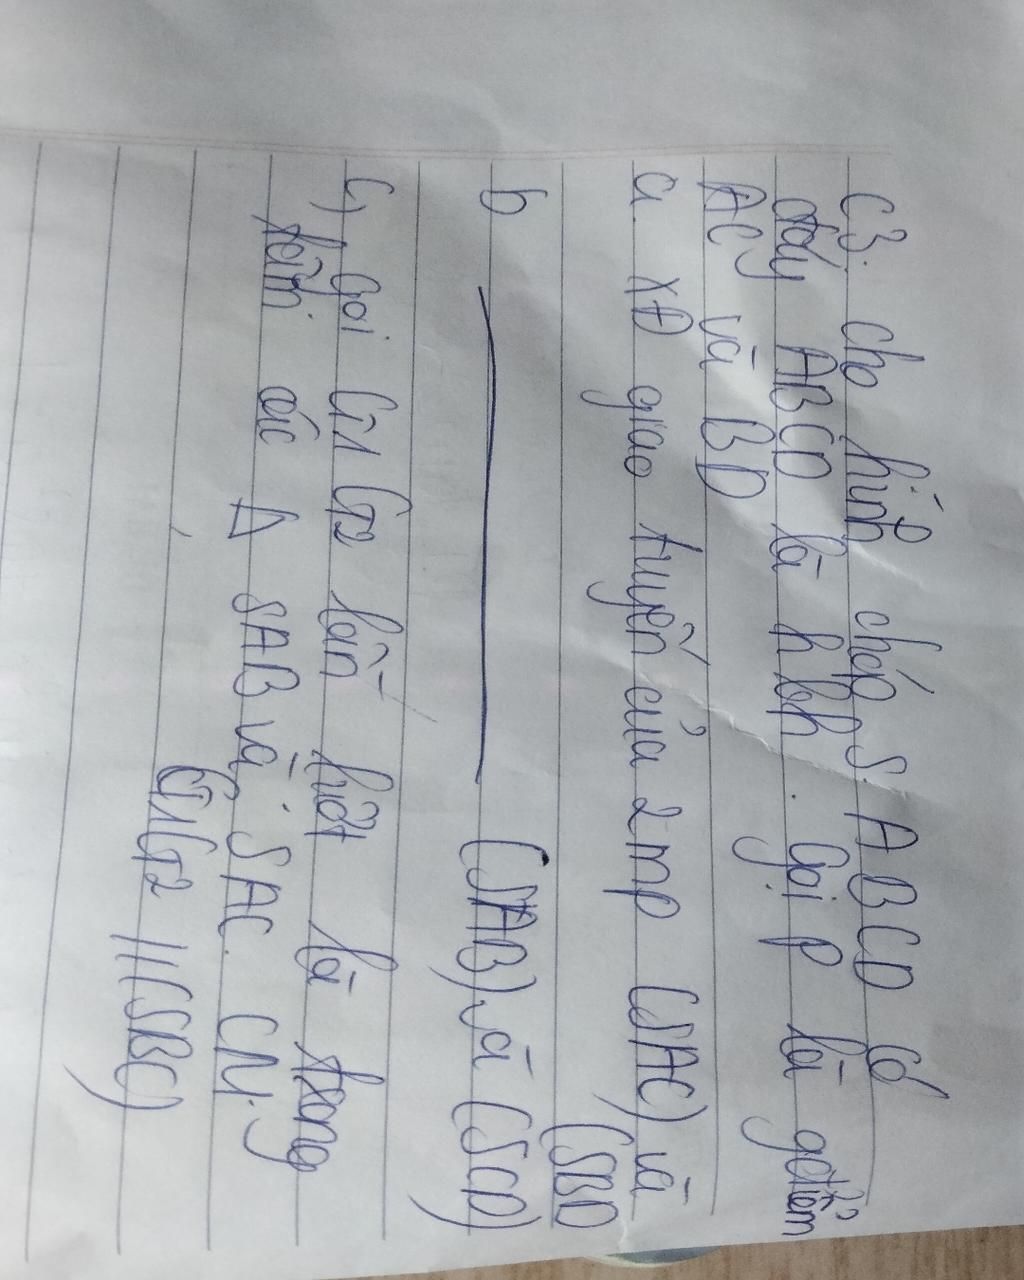 C3. cho hình chóp S.ABCD có
đáy ABCD là hbh. Gọi P là gđiểm
AC và BD
a XĐ giao tuyến của 2mp (SAC) và
(SBD
b ——— (SAB) và (SCD)
c, gọi G1 G2 lần lượt là trọng
tâm các Δ SAB và SAC. CM.
G1G2 // (SBC)